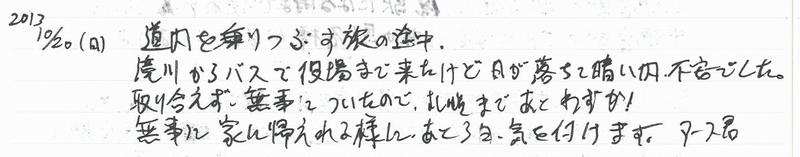 2013
10/20(日) 道内を乗りつぶす旅の途中.
滝川からバスで役場まで来たけど日が落ちて暗い内、不安でした。
取り合えず、無事についたので、札幌まであとわずか!
無事に家に帰えれる様に、あと3日、気を付けます。 アース君